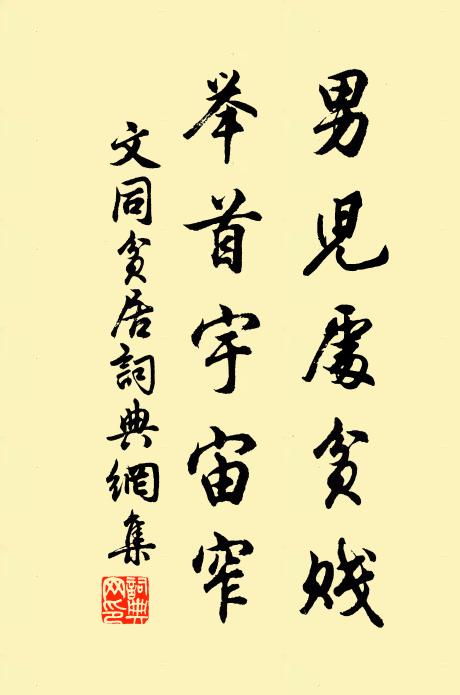 男児處貧賤
举首宇宙窄
文同貧居詞典網集
詞典
网印